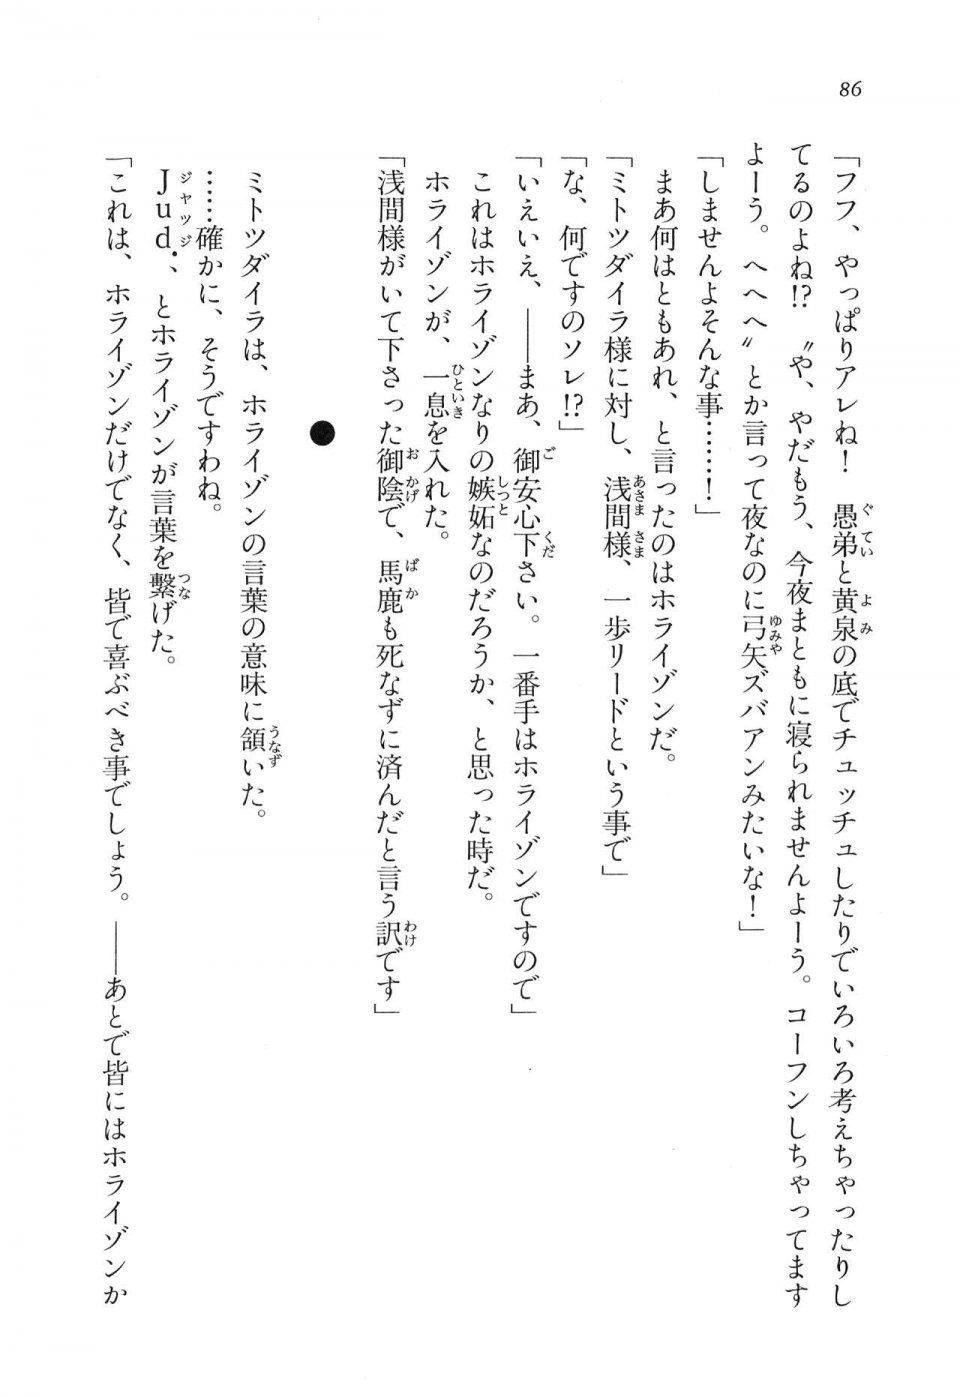 86
「フフ、やっぱりアレね！　愚弟と黄泉の底でチュッチュしたりでいろいろ考えちゃったりし
てるのよね!?　〝や、やだもう、今夜まともに寝られませんよーう。コーフンしちゃってます
よーう。へへへ〟とか言って夜なのに弓矢ズバアンみたいな！」
「しませんよそんな事……！」
まあ何はともあれ、と言ったのはホライゾンだ。
「ミトツダイラ様に対し、浅間様、一歩リードという事で」
「な、何ですのソレ!?」
「いえいえ、――まあ、御安心下さい。一番手はホライゾンですので」
これはホライゾンなりの嫉妬なのだろうか、と思った時だ。
ホライゾンが、一息を入れた。
「浅間様がいて下さった御陰で、馬鹿も死なずに済んだと言う訳です」
●
ミトツダイラは、ホライゾンの言葉の意味に頷いた。
……確かに、そうですわね。
Jud.、とホライゾンが言葉を繋げた。
「これは、ホライゾンだけでなく、皆で喜ぶべき事でしょう。――あとで皆にはホライゾンか